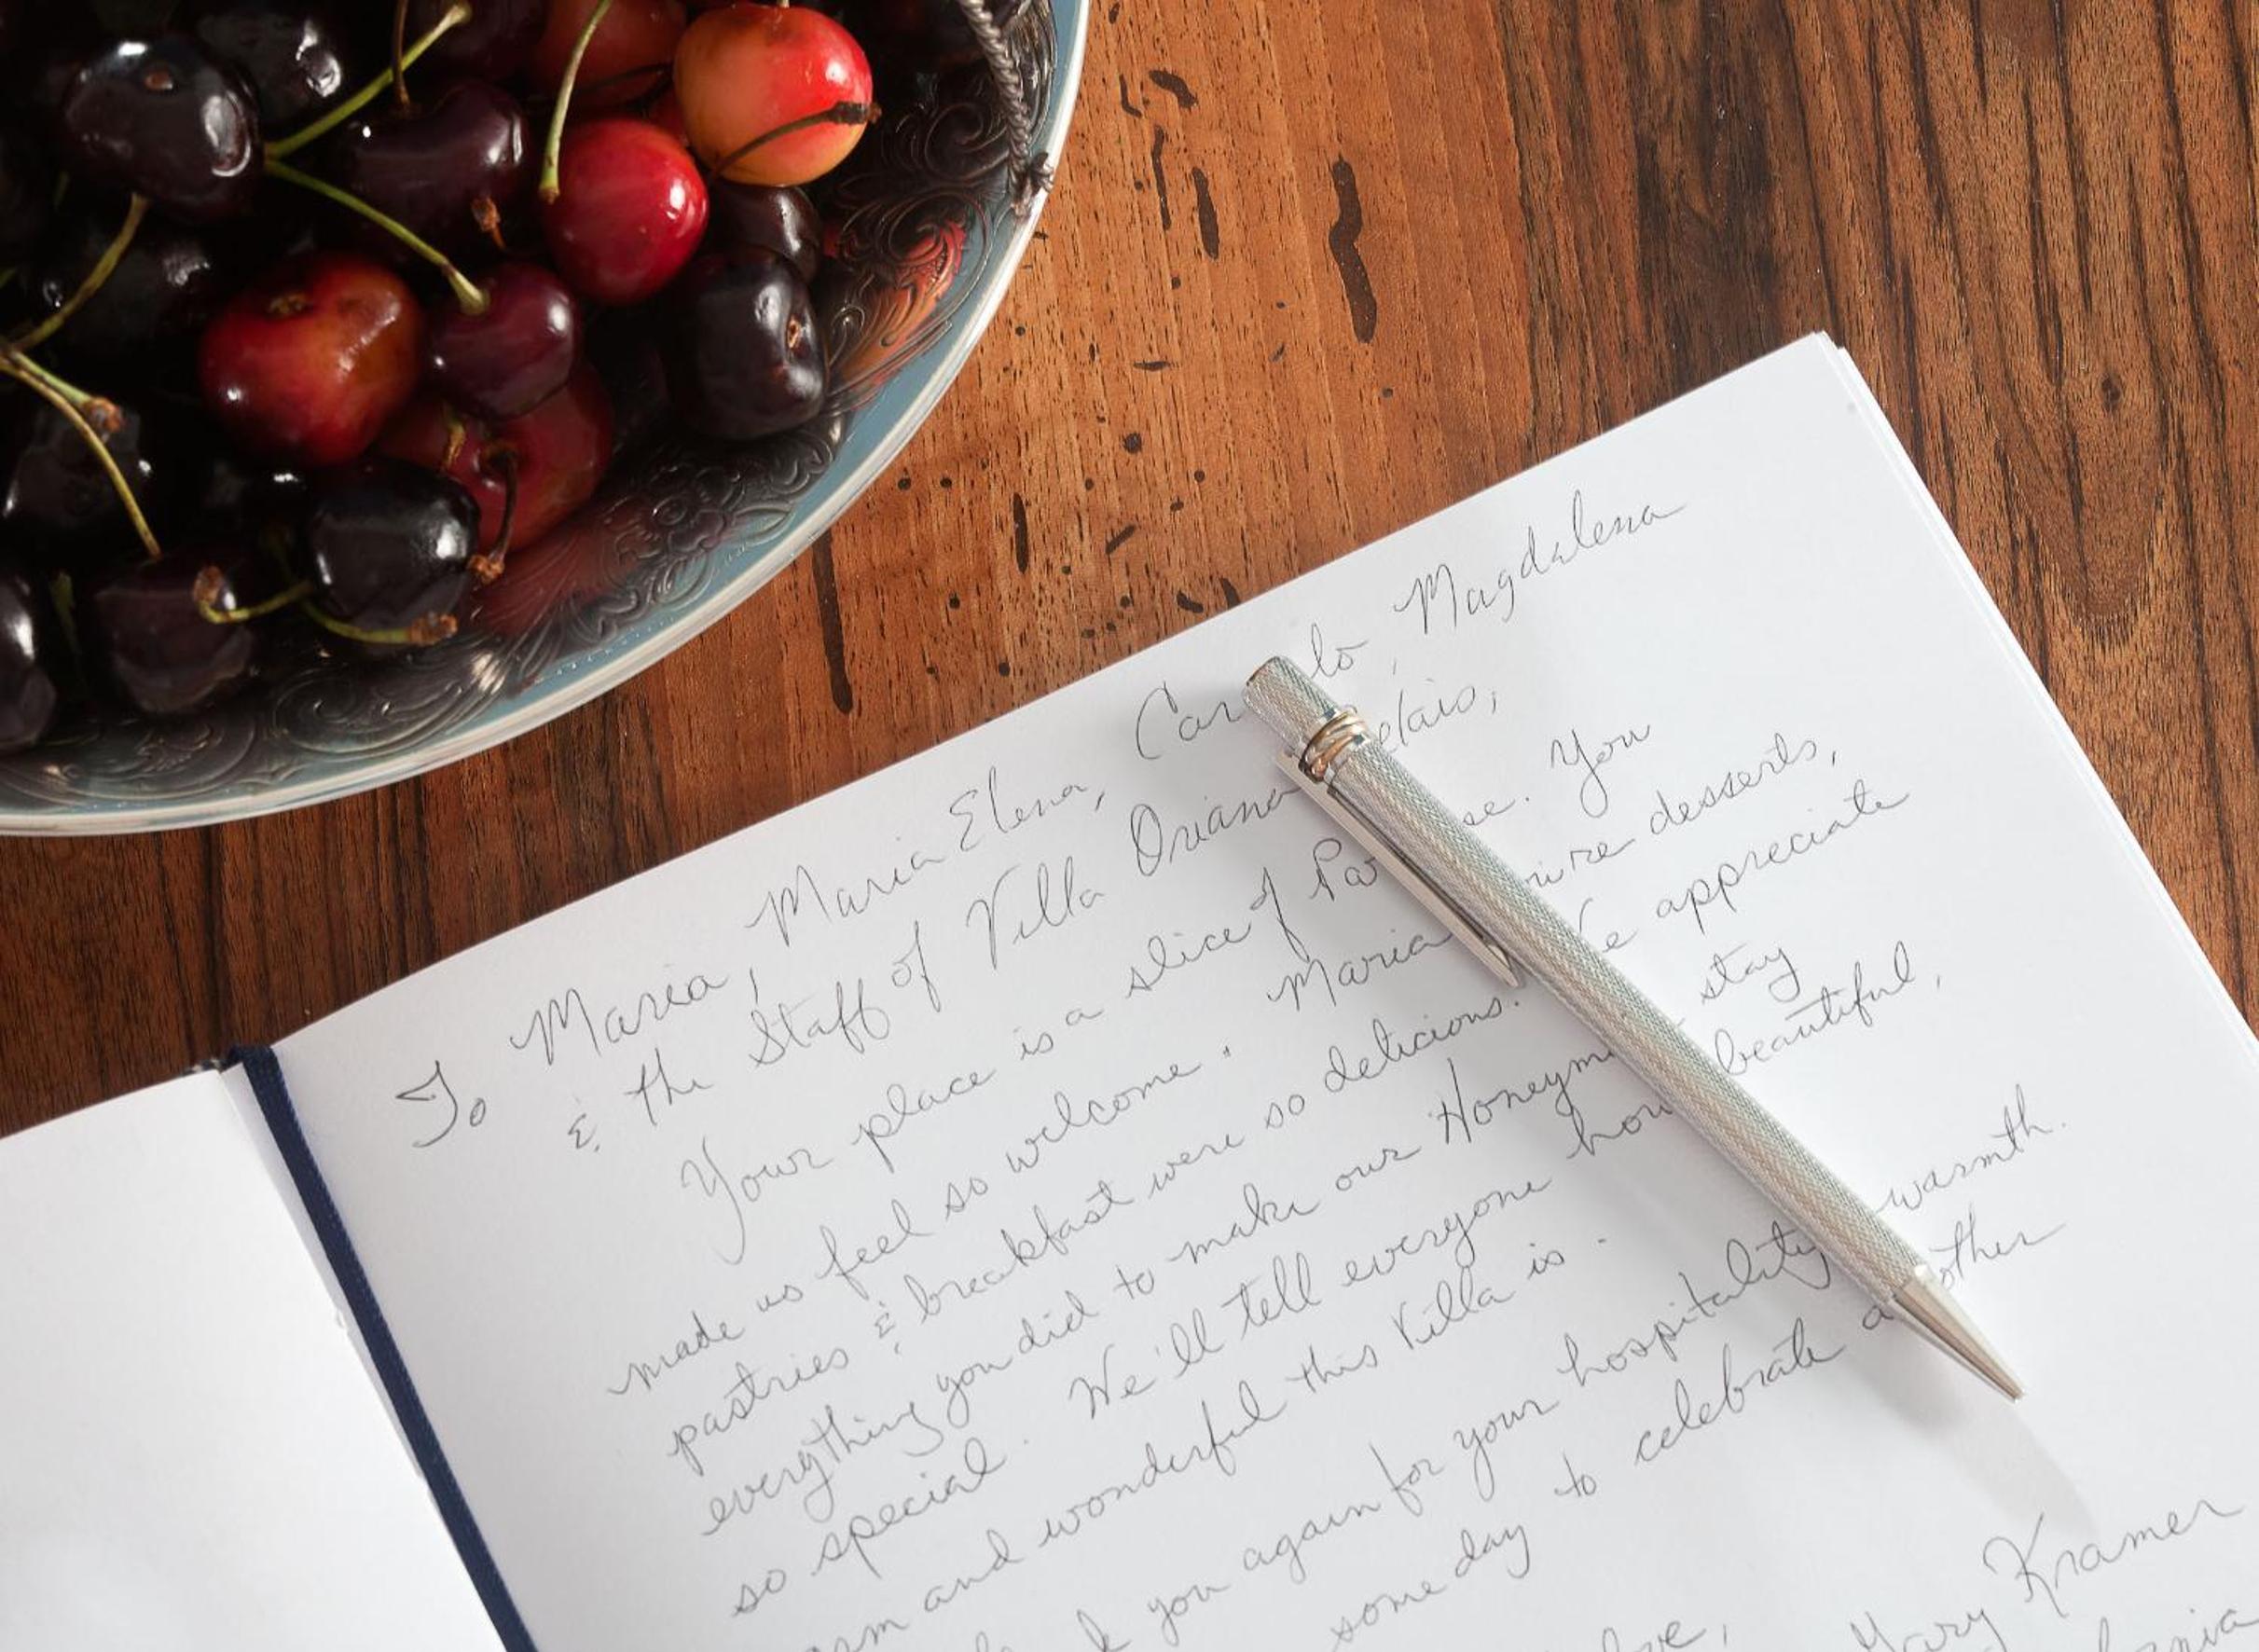 To Maria, Maria Elena, Carlo, Magdalena
& the Staff of Villa Oriana
Your place is a slice of You
made us feel so welcome. Maria desserts,
pastries & breakfast were so delicious. We appreciate
everything you did to make our Honeym stay
so special. We'll tell everyone how beautiful,
and wonderful this Villa is.
you again for your hospitality warmth.
some day to celebrate another
Mary Kramer